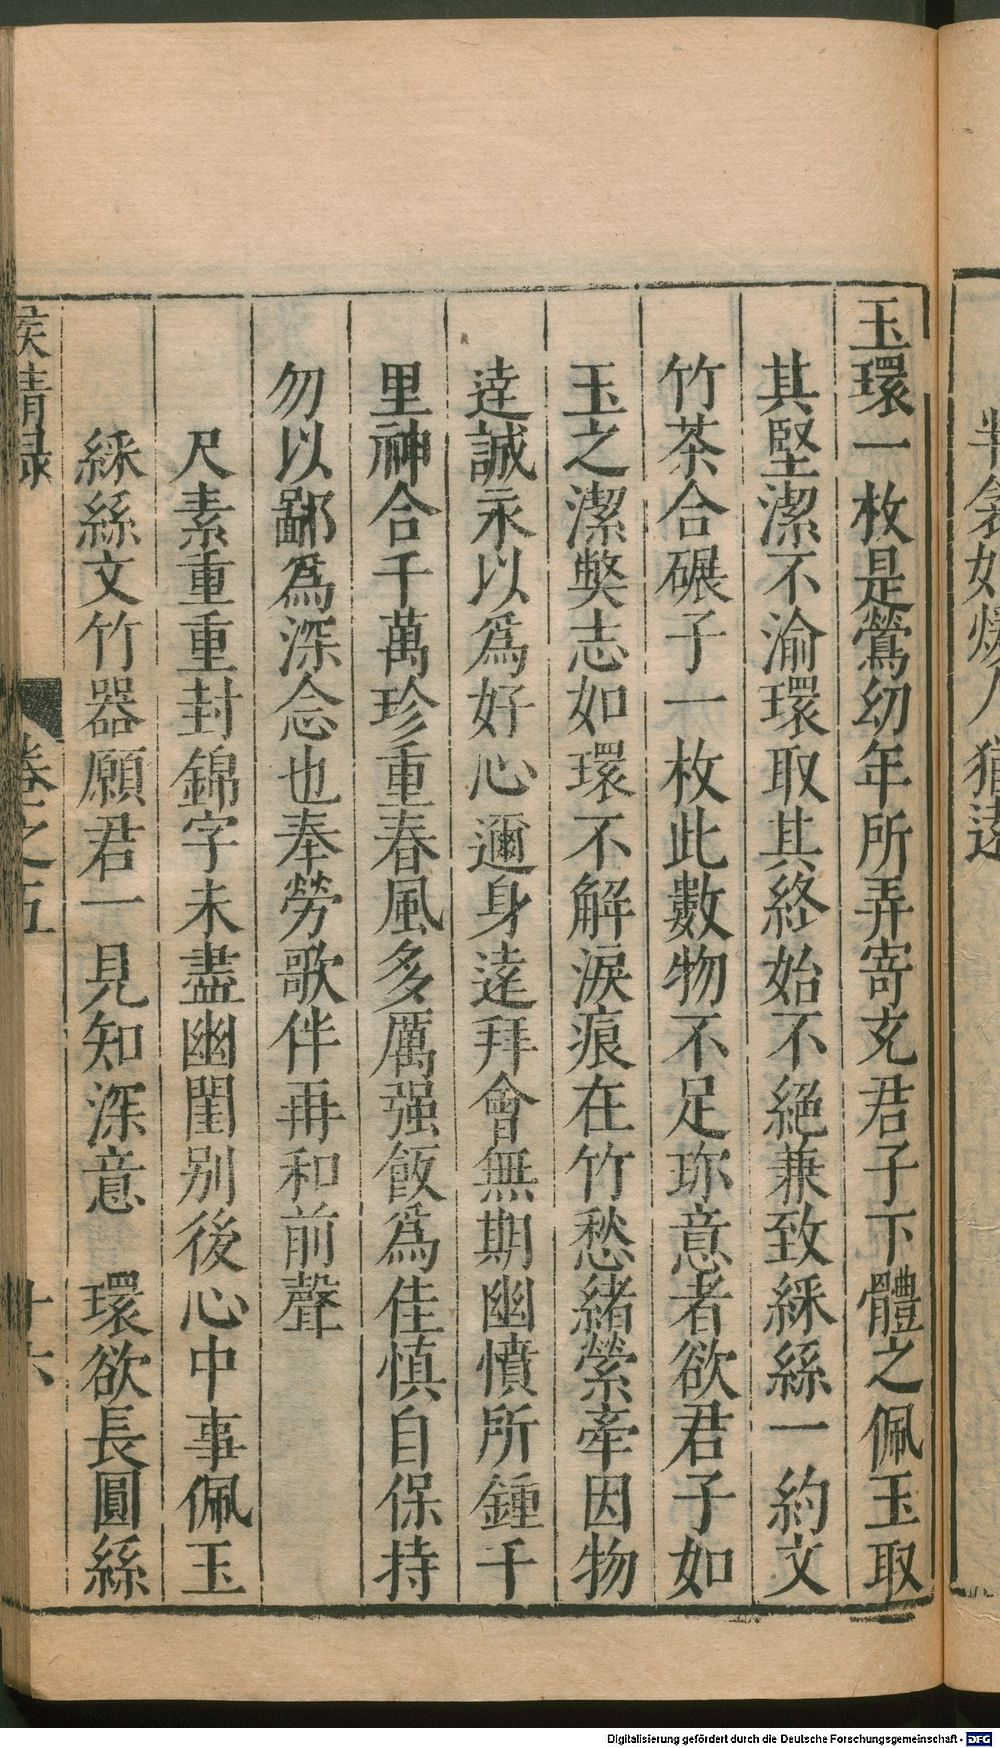 玉環一枚是鶯幼年所弄寄充君子下體之佩玉取
其堅潔不渝環取其終始不絕兼致綵絲一絇文
竹茶合碾子一枚此數物不足珎意者欲君子如
玉之潔獘志如環不解淚痕在竹愁緒縈牽因物
逹誠永以爲好心邇身逺拜會無期幽憤所鍾千
里神合千萬珍重春風多厲强飯爲佳慎自保持
勿以鄙爲深念也奉勞歌伴再和前聲
尺素重重封錦字未盡幽閨别後心中事佩玉
綵絲文竹器願君一見知深意　環欲長圓絲
侯鯖録
卷之五
十六
Digitalisierung gefördert durch die Deutsche Forschungsgemeinschaft - DFG